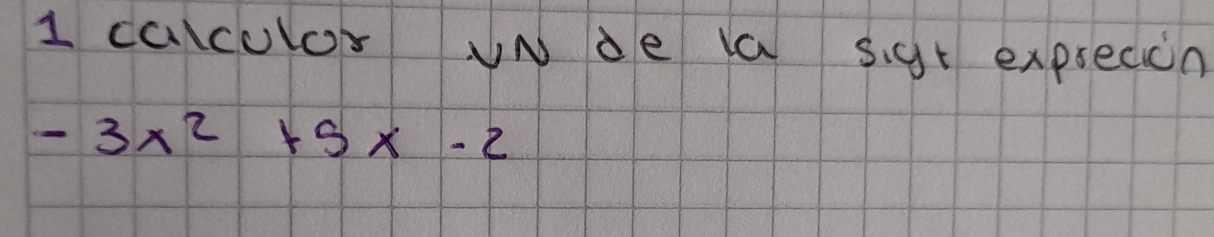 1 calculor VN de la sigt expreción
- 3x² +5x -2